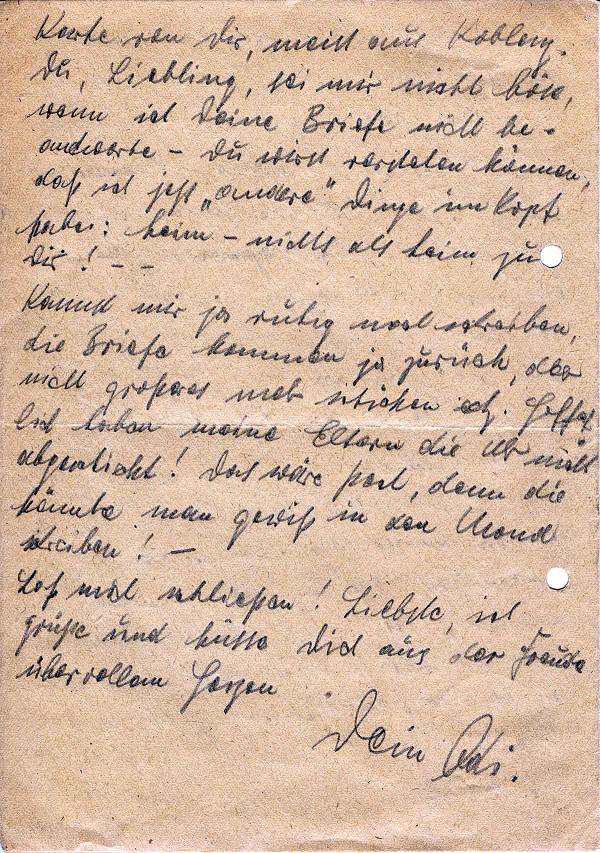 Karte von Dir, meist aus Koblenz.
Du, Liebling, sei mir nicht böse,
wenn ich Deine Briefe nicht be-
antworte - Du wirst verstehen können,
daß ich jetzt „andere" Dinge im Kopf
habe: heim - nichts als heim zu
Dir! - -
Kannst mir ja ruhig noch schreiben,
die Briefe kommen ja zurück, aber
nicht größeres mehr schicken etz. Hoffent
lich haben meine Eltern die Uhr nicht
abgeschickt! Das wäre, denn die
könnte man gewiß in den Mond
schreiben! -
Laß mich schließen! Liebste, ich
grüße und küsse Dich aus der Freude
übervollem Herzen
Dein